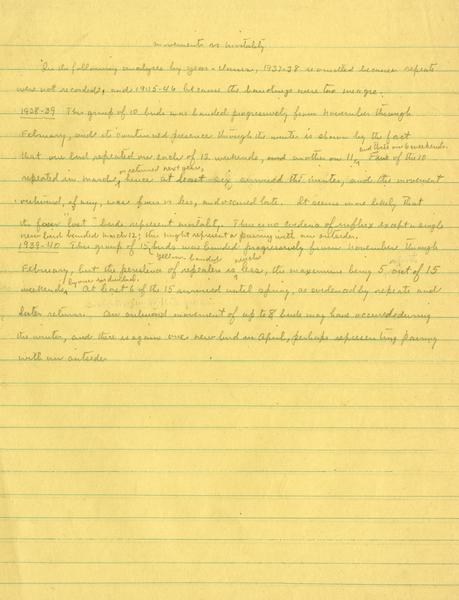 Movements vs Mortality
In the following analyses by year-classes, 1937-38 is omitted because repeats
were not recorded, and 1945-46 because the bandings were too meagre.
1938-39 This group of 10 birds was banded progressively from November through
February, and its continued presence through the winter is shown by the fact
that one bird repeated on each of 12 weekends, and another on 11, and three on 6 weekends. Four of the 10
repeated in March, or returned next year, hence at least six survived the winter, and the movement
outward, if any, was four or less, and occurred late. It seems more likely that
the four "lost" birds represent mortality. There is no evidence of influx except a single
new bird banded March 12; this might represent a pairing with an outsider.
1939-40 This group of 15 birds was banded progressively from November through
February, but the persistence of repeaters is less, the maximum being 5 out of 15
weekends, by one individual. At least 6 of the 15 survived until spring, as evidenced by repeats and
later returns. An outward movement of up to 8 birds may have occurred during
the winter, and there is again one new bird in April, perhaps representing pairing
with an outsider